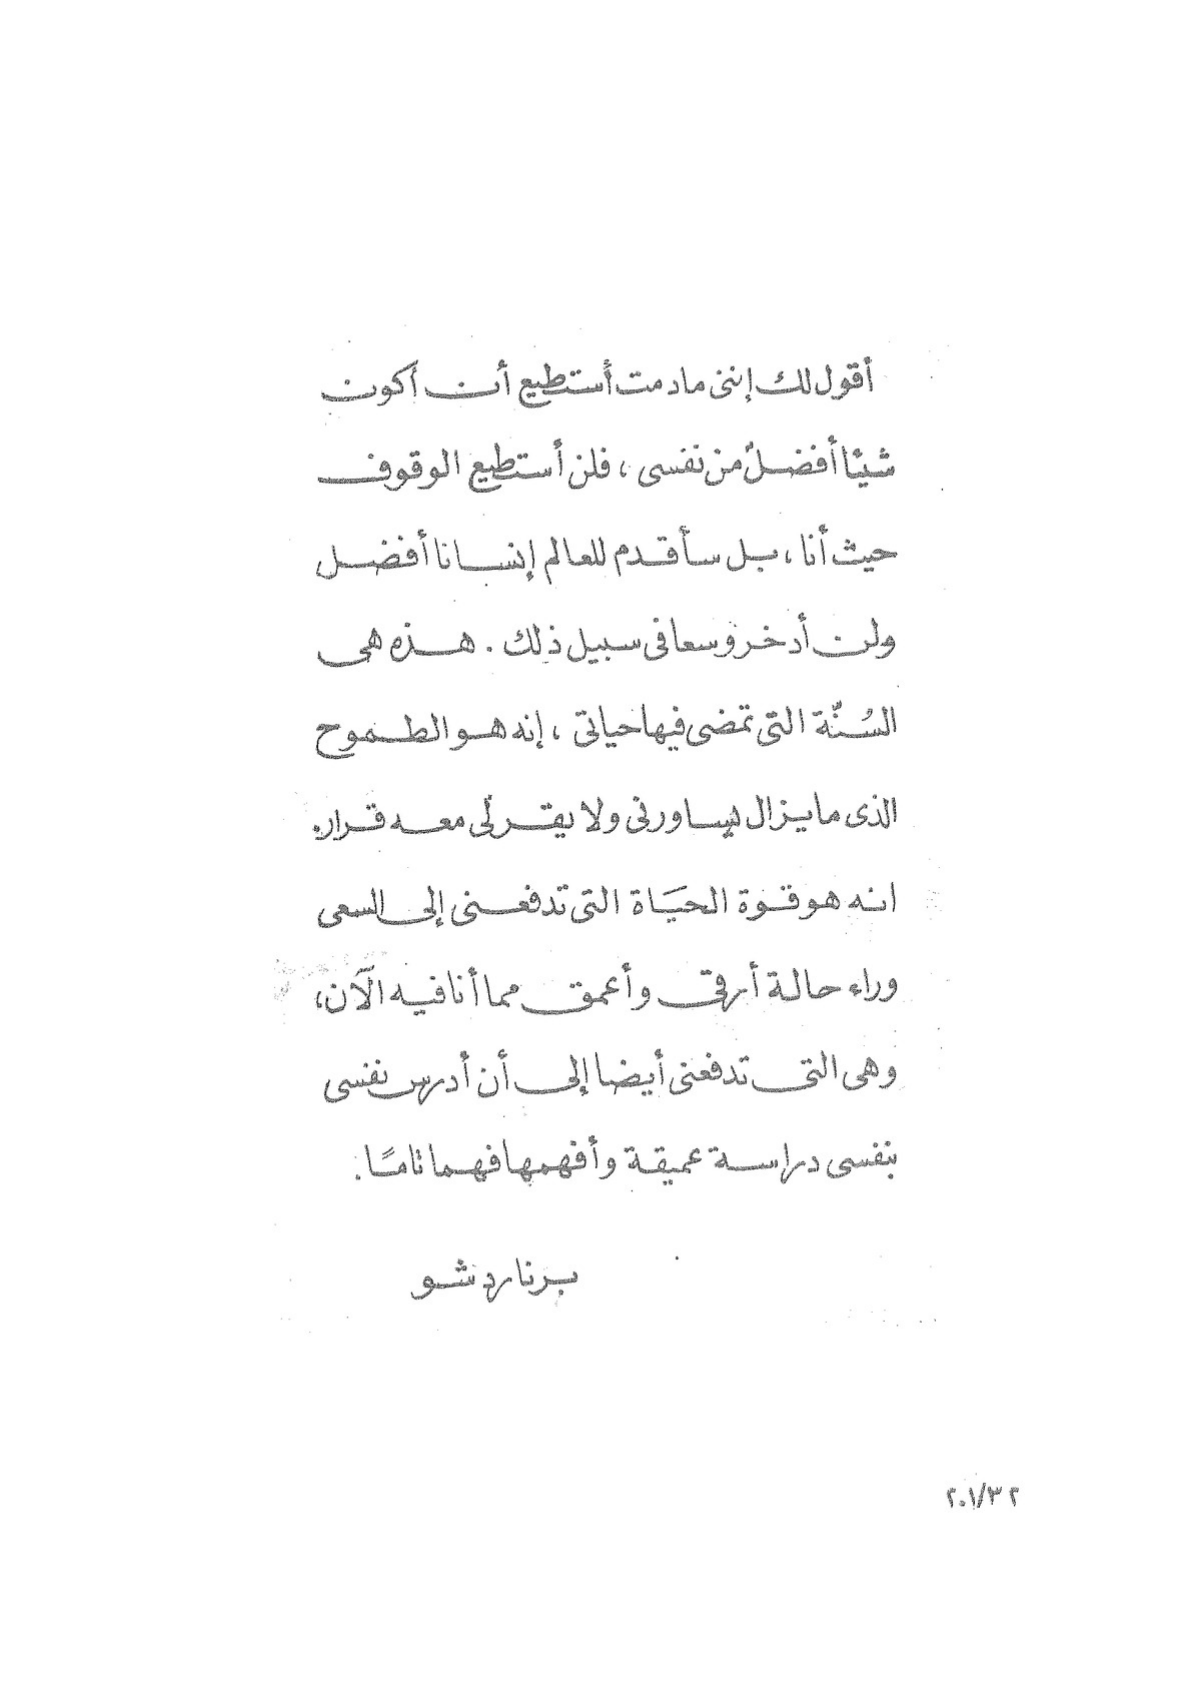 أقول لك إننى مادمت أستطيع أن أكون
شيئا أفضل من نفسى ، فلن أستطيع الوقوف
حيث أنا ، بل سأقدم للعالم إنسانا أفضل
ولن أدخر وسعا فى سبيل ذلك . هذه هى
السُنّة التى تمضى فيها حياتى ، إنه هو الطموح
الذى ما يزال يساورنى ولا يقر لى معه قرار.
انه هو قوة الحيَاة التى تدفعنى إلى السعى
وراء حالة أرقى وأعمق مما أنا فيه الآن،
وهى التى تدفعنى أيضا إلى أن أدرس نفسى
بنفسى دراسة عميقة وأفهمها فهما تامًا .
برنارد شو
٢٠١/٣٢